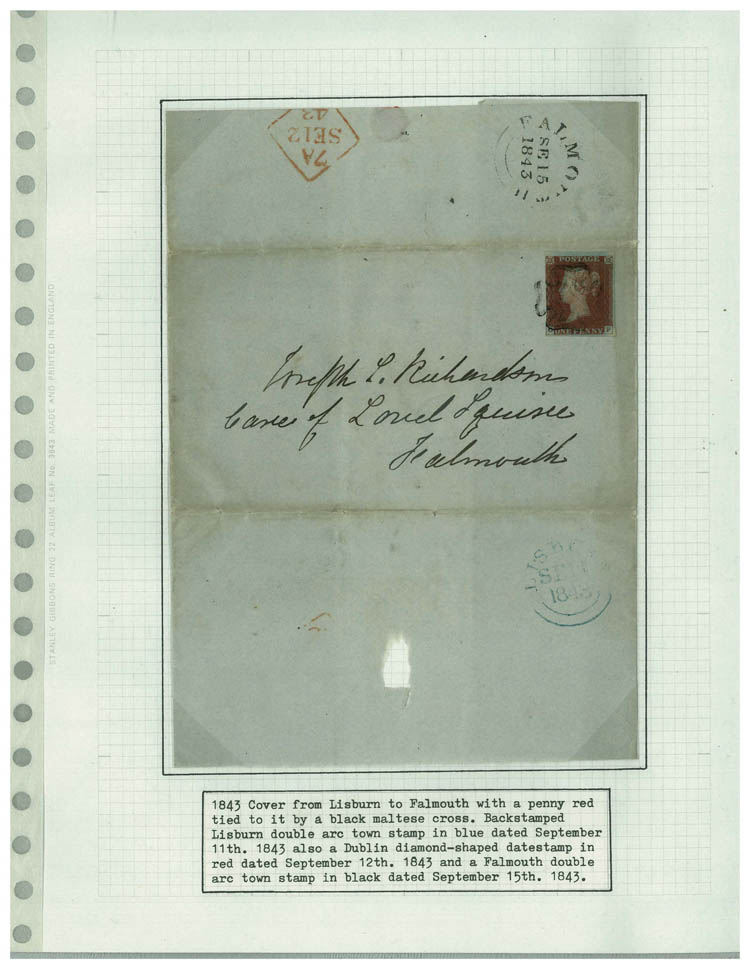 7A
SE12
43
FALMO
SE 15
1843
POSTAGE
ONE PENNY
Joseph L. Richardson
Care of Lovel Squire
Falmouth
1843
STANLEY GIBBONS RING 22 ALBUM LEAF No. 3843 MADE AND PRINTED IN ENGLAND
1843 Cover from Lisburn to Falmouth with a penny red
tied to it by a black maltese cross. Backstamped
Lisburn double arc town stamp in blue dated September
11th. 1843 also a Dublin diamond-shaped datestamp in
red dated September 12th. 1843 and a Falmouth double
arc town stamp in black dated September 15th. 1843.